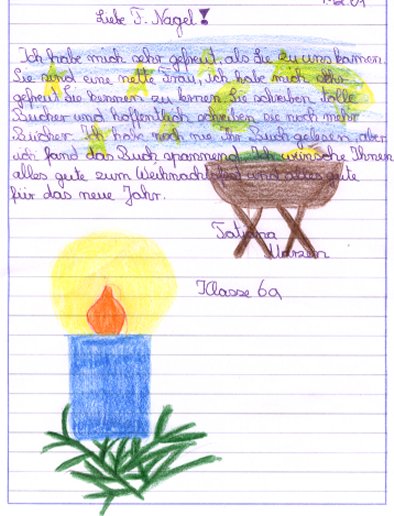 Liebe F. Nagel!
Ich habe mich sehr gefreut, als Sie zu uns kamen.
Sie sind eine nette Frau, ich habe mich sehr
gefreut Sie kennen zu lernen. Sie schreiben tolle
Bücher und hoffentlich schreiben sie noch mehr
Bücher. Ich habe noch nie ihr Buch gelesen, aber
ich fand das Buch spannend. Ich wünsche Ihnen
alles gute zum Weihnachtsfest und alles gute
für das neue Jahr.
Tatjana
Klasse 6a